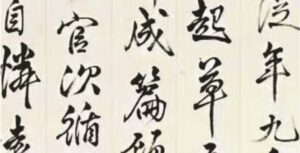 年九
起草
成篇
官次循
自憐